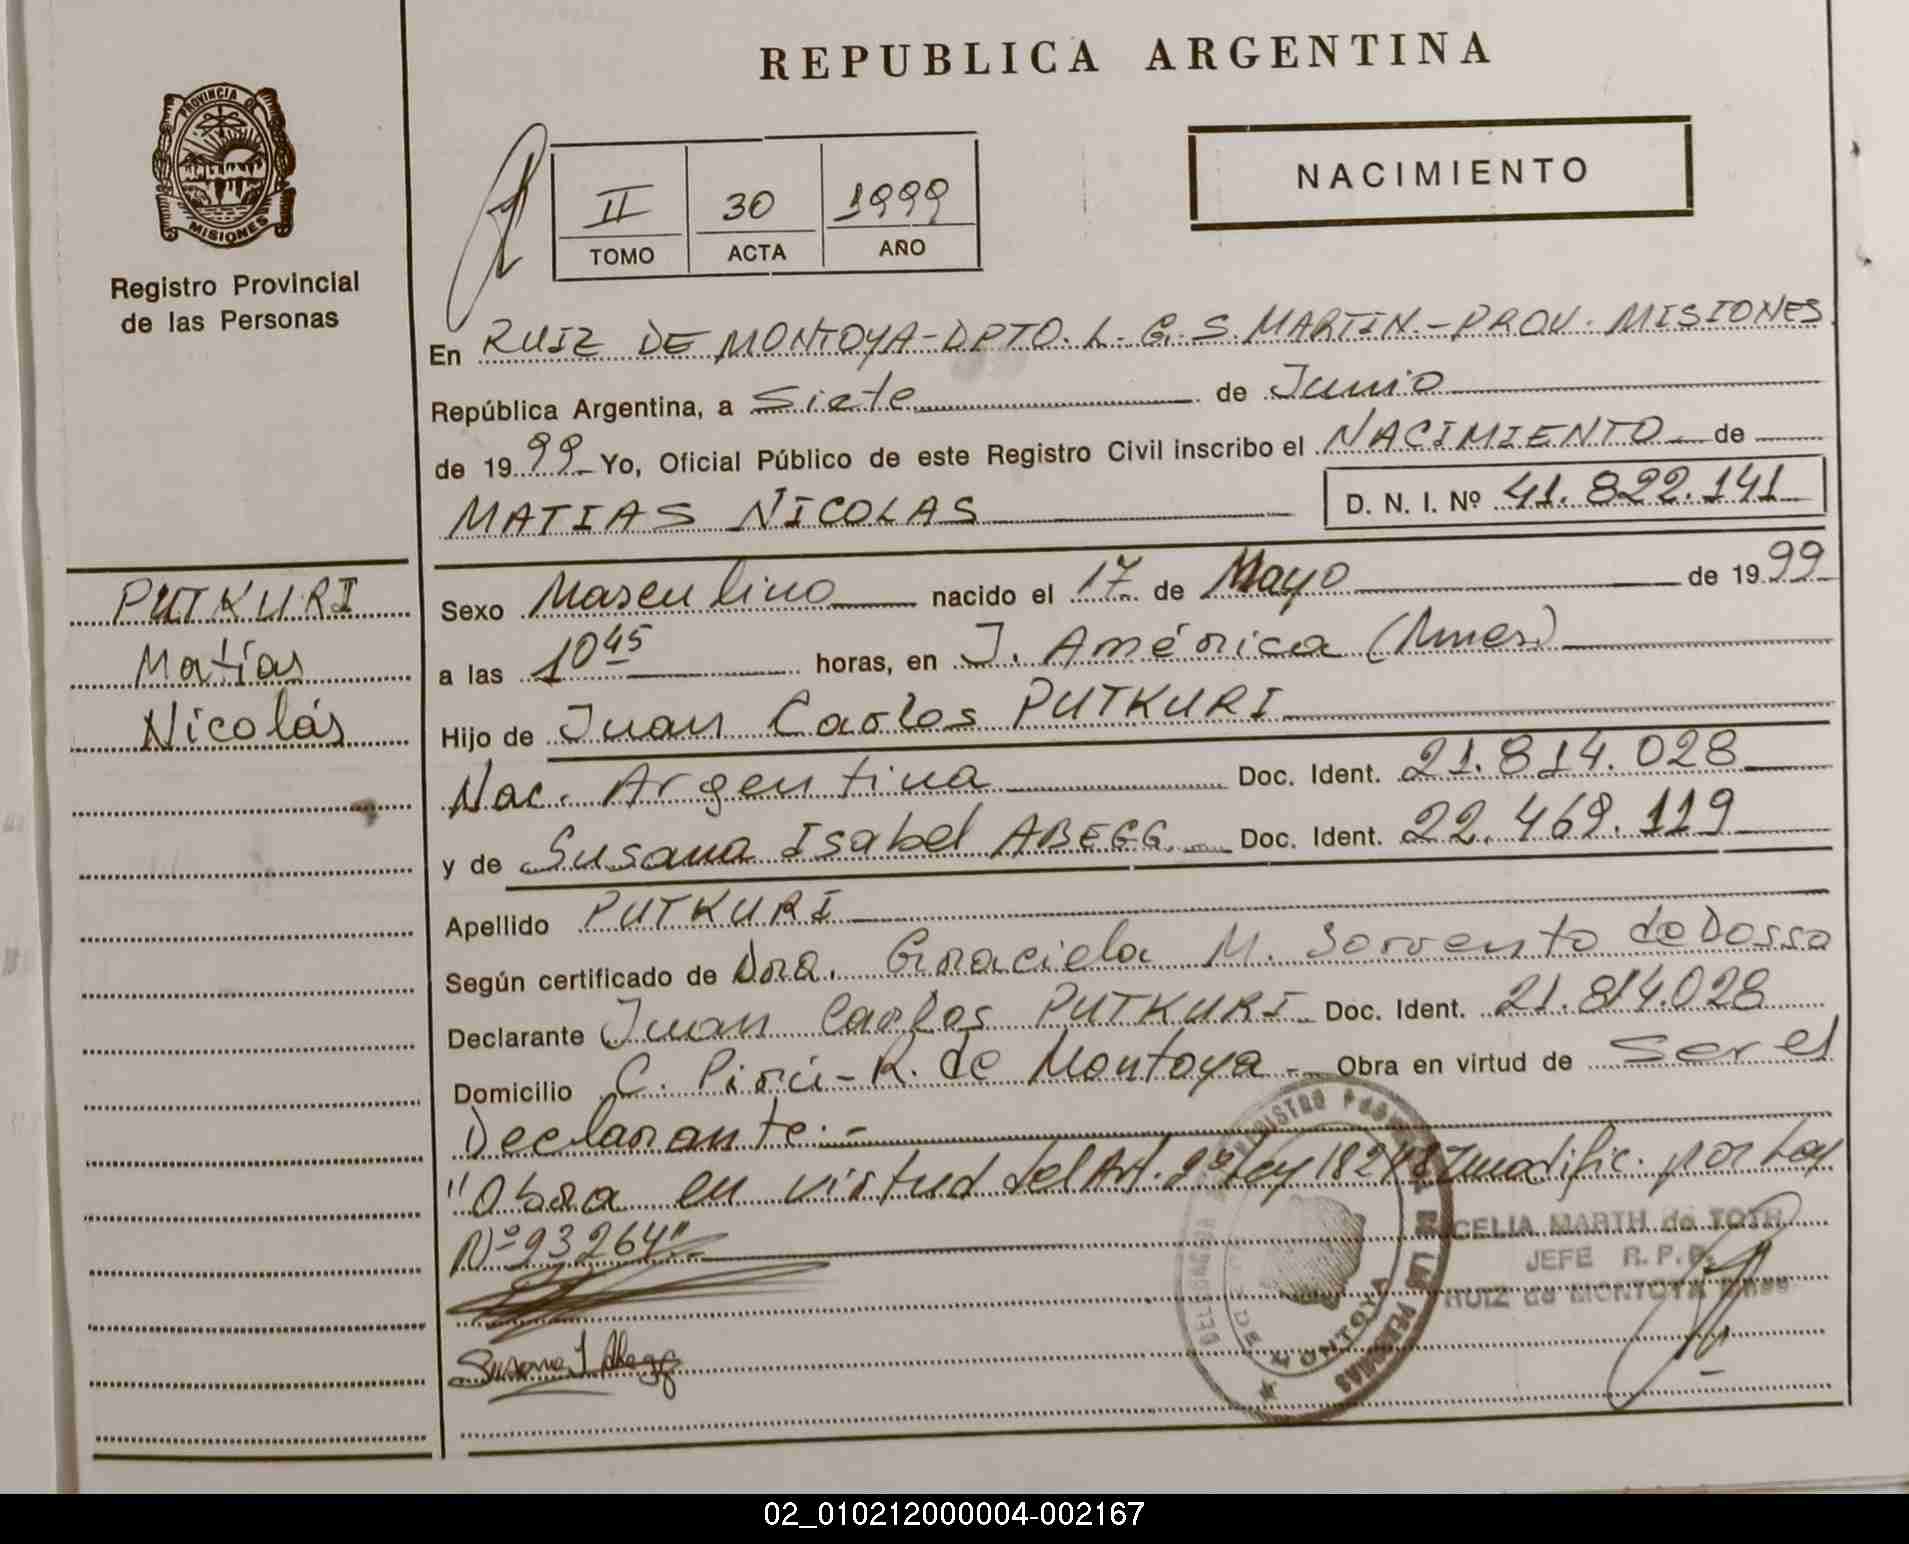 REPUBLICA ARGENTINA
PROVINCIA DE
MISIONES
Registro Provincial
de las Personas
II 30 1999
TOMO ACTA AÑO
NACIMIENTO
En RUIZ DE MONTOYA-DPTO. L. G. S. MARTIN.-PROV. MISIONES
República Argentina, a Siete de Junio
de 1999 Yo, Oficial Público de este Registro Civil inscribo el NACIMIENTO de
MATIAS NICOLAS D. N. I. Nº 41.822.141
PUTKURI
Matías
Nicolás
Sexo Masculino nacido el 17 de Mayo de 1999
a las 10 45 horas, en J. América (Mnes)
Hijo de Juan Carlos PUTKURI
Nac. Argentina Doc. Ident. 21.814.028
y de Susana Isabel ABEGG Doc. Ident. 22.469.119
Apellido PUTKURI
Según certificado de Dra. Graciela M. Sorvento de Dosso
Declarante Juan Carlos PUTKURI Doc. Ident. 21.814.028
Domicilio C. Pirú-R. de Montoya - Obra en virtud de Ser el
Declarante.-
"Obra en virtud del Art. 2º Ley 18248 modific. por Ley
Nº 23264".-
CELIA MARTH de TOTH
JEFE R.P.P.
RUIZ de MONTOYA Mnes
Susana I Abegg
DE LAS PERSONAS
DE MONTOYA
02_010212000004-002167